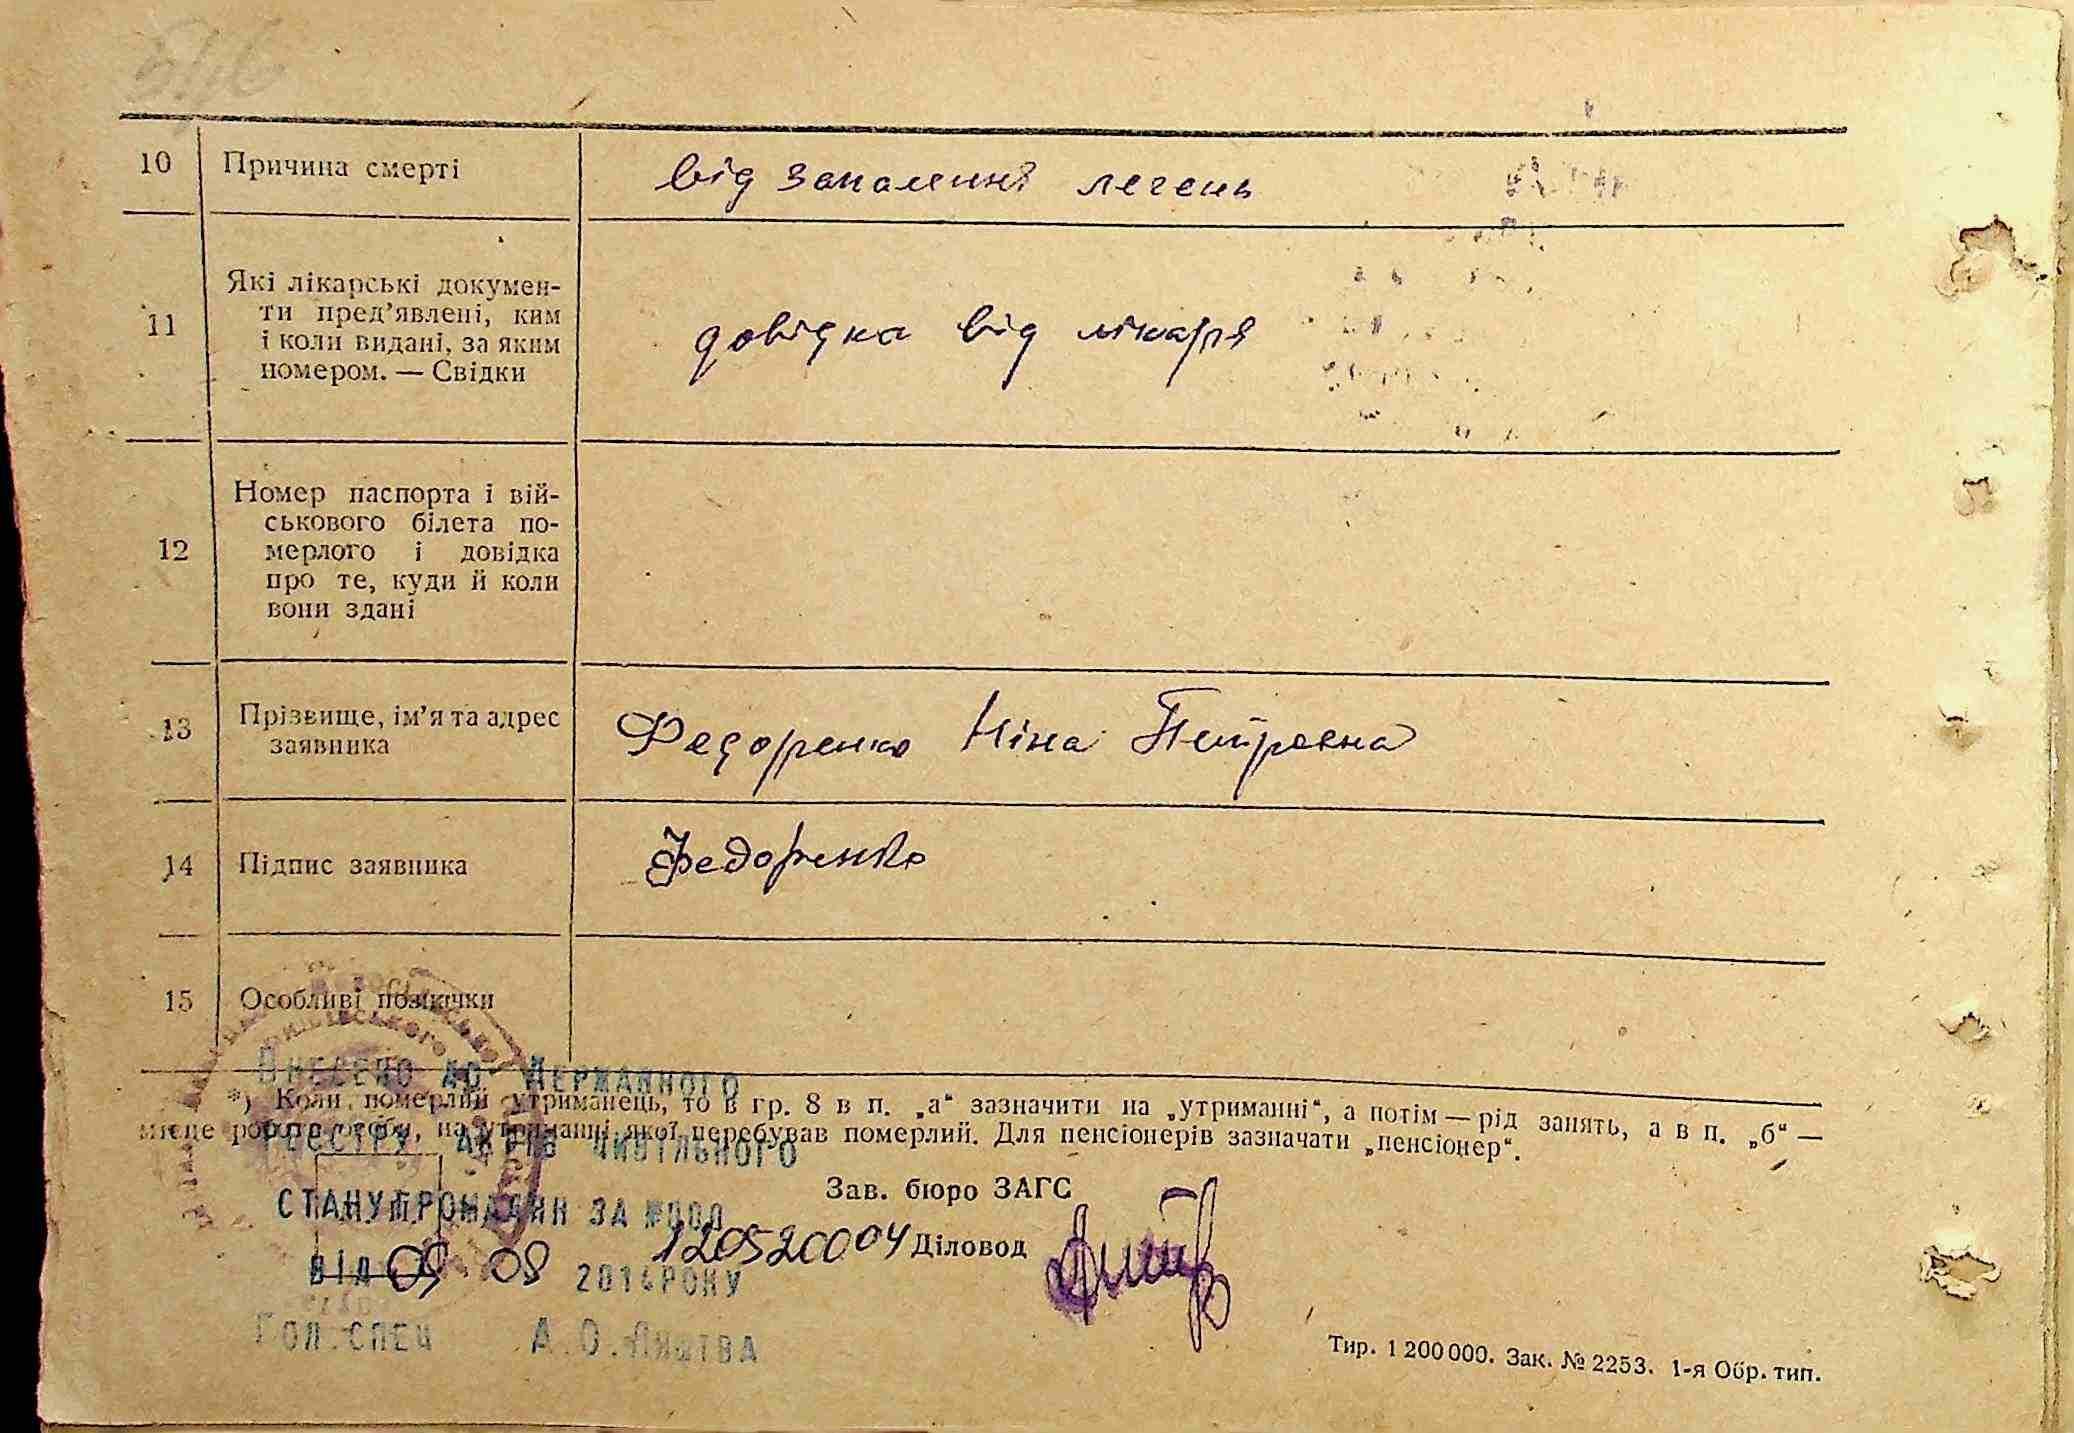 10 Причина смерті від запалення легень
11 Які лікарські докумен-
ти пред’явлені, ким
і коли видані, за яким
номером. — Свідки
довідка від лікаря
12 Номер паспорта і вій-
ськового білета по-
мерлого і довідка
про те, куди й коли
вони здані
13 Прізвище, ім’я та адрес
заявника
Федоренко Ніна Петровна
14 Підпис заявника Федоренко
15 Особливі позначки
Внесено до Державного
*) Коли померлий утриманець, то в гр. 8 в п. „а“ зазначити на „утриманні“, а потім — рід занять, а в п. „б“ —
місце роботи особи, на утриманні якої перебував померлий. Для пенсіонерів зазначати „пенсіонер“.
реєстру актів цивільного
Зав. бюро ЗАГС
стану громадян за №000
120520004 Діловод
від 09 08 2014 року
Гол. спец А.О.
Тир. 1 200 000. Зак. № 2253. 1-я Обр. тип.